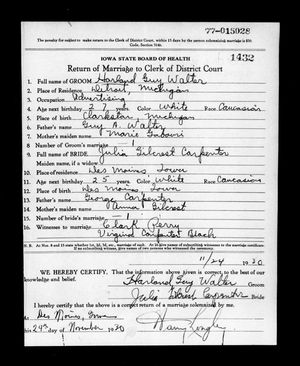 77-015028
The penalty for neglect to make return to the Clerk of District Court, within 15 days by the person solemnizing marriage is $50
Code, Section 10446.
IOWA STATE BOARD OF HEALTH
1432
Return of Marriage to Clerk of District Court
1 Full name of GROOM Harland Guy Walter
2 Place of Residence Detroit, Michigan
3 Occupation Advertising
4 Age next birthday 27 years Color White Race Caucasian
5 Place of Birth Clarkston, Michigan
6 Father's name Guy A. Walter
7 Mother's maiden name Marie
8 Number of Groom's marriage 1
Full name of BRIDE Julia Gilcrest Carpenter
Maiden name, if a widow
10 Place of residence Des Moines Iowa
11 Age next birthday 25 years Color White Race Caucasian
12 Place of Birth Des Moines Iowa
13 Father's name George Carpenter
14 Mother's maiden name Anna Gilcrest
15 Number of bride's marriage 1
16 Witnesses to marriage Clark Perry
Virginia Carpenter Black
N. B. At Nos. 8 and 15 state whether 1st, 2d, 3d, etc., marriage of each. At 16 give names of subscribing witnesses to the marriage certificate.
If no subscribing witnesses, give names of two persons who witnessed the ceremony.
11/24 1930
WE HEREBY CERTIFY, That the information above given is correct, to the best of our
knowledge and belief.
Harland Guy Walter Groom
Julia Gilcrest Carpenter Bride
I hereby certify that the above is a correct return of a marriage solemnized by me,
at Des Moines, Iowa
this 29th day of November 1930
Harry